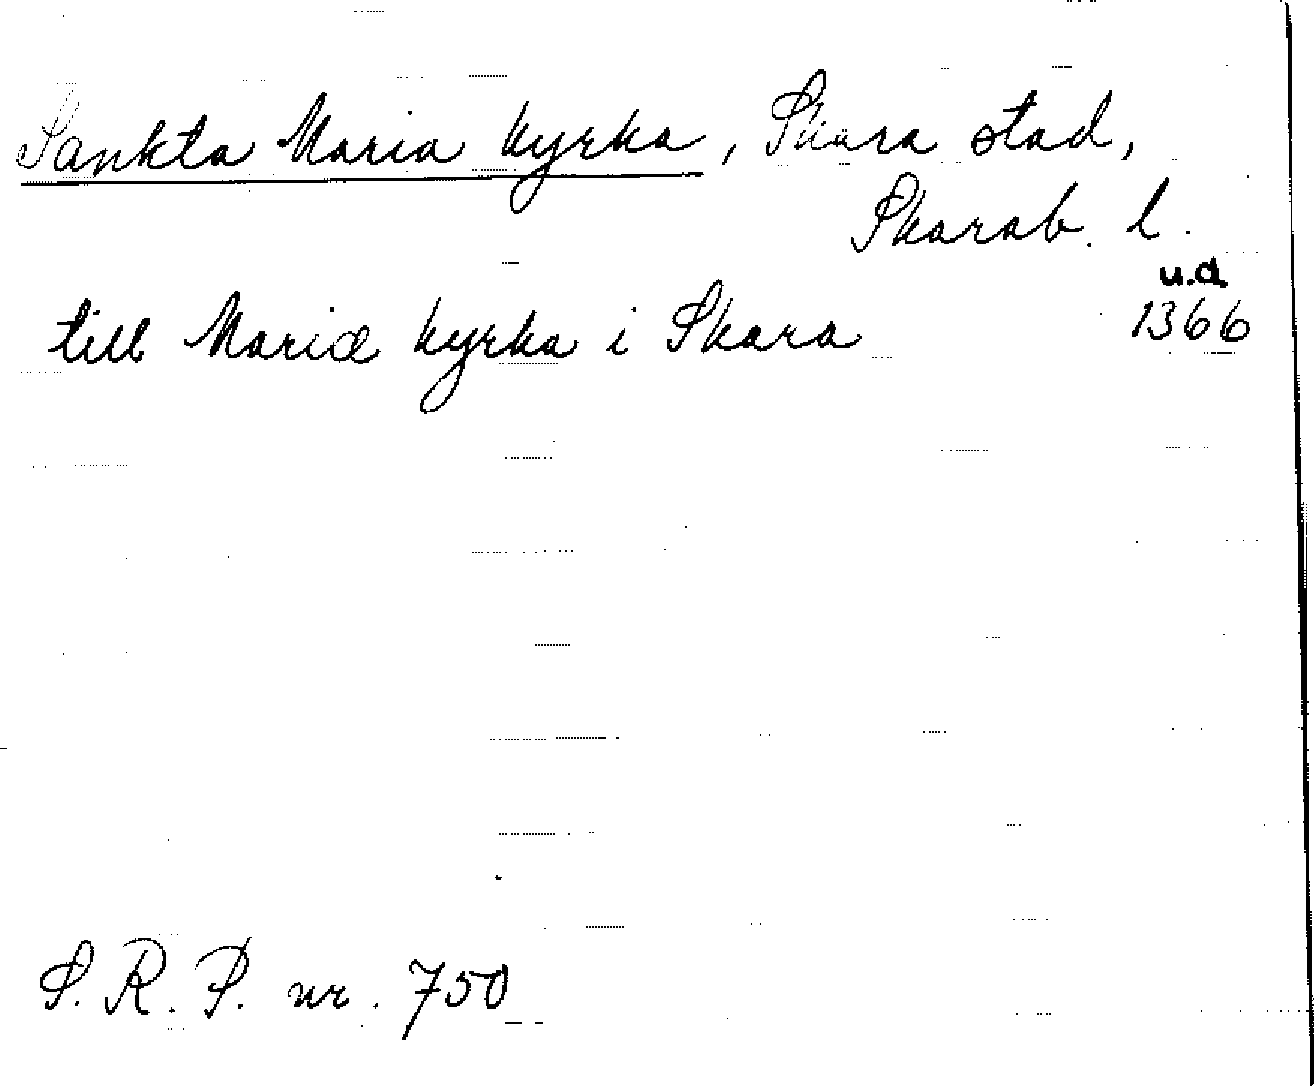 Sankta Maria kyrka, Skara stad,
Skarab. l.
u.d.
till Mariæ kyrka i Skara 1366
S. R. P. nr. 750